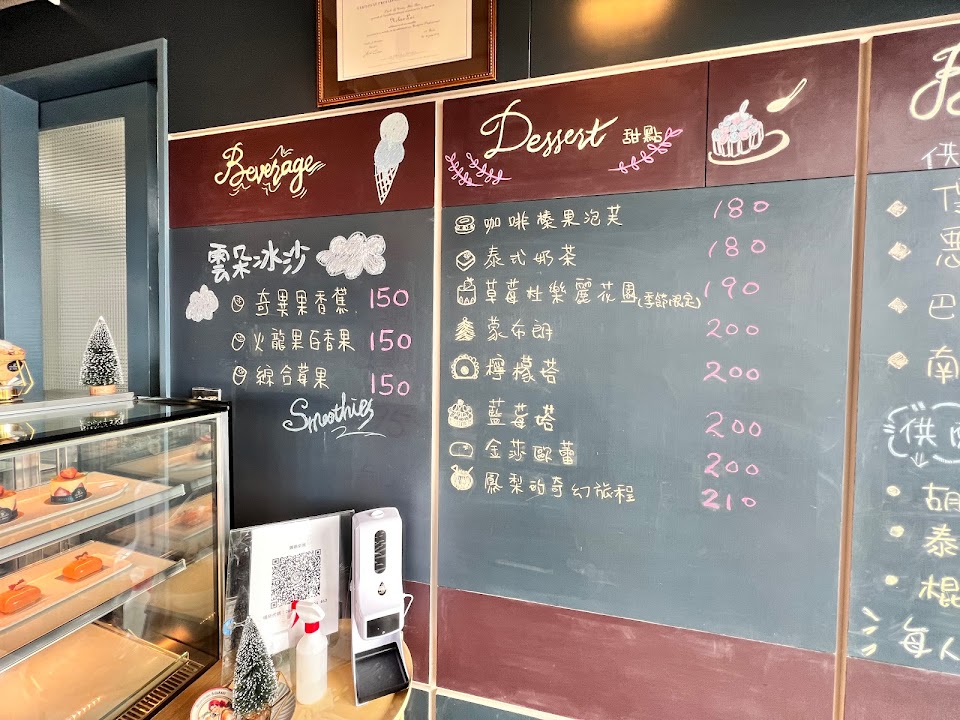 Beverage
雲朵冰沙
奇異果香蕉 150
火龍果百香果 150
綜合莓果 150
Smoothies
Dessert 甜點
咖啡榛果泡芙 180
泰式奶茶 180
草莓杜樂麗花園(季節限定) 190
蒙布朗 200
檸檬塔 200
藍莓塔 200
金莎歐蕾 200
鳳梨的奇幻旅程 210
供
巴
南
供
胡
泰
棍
每人